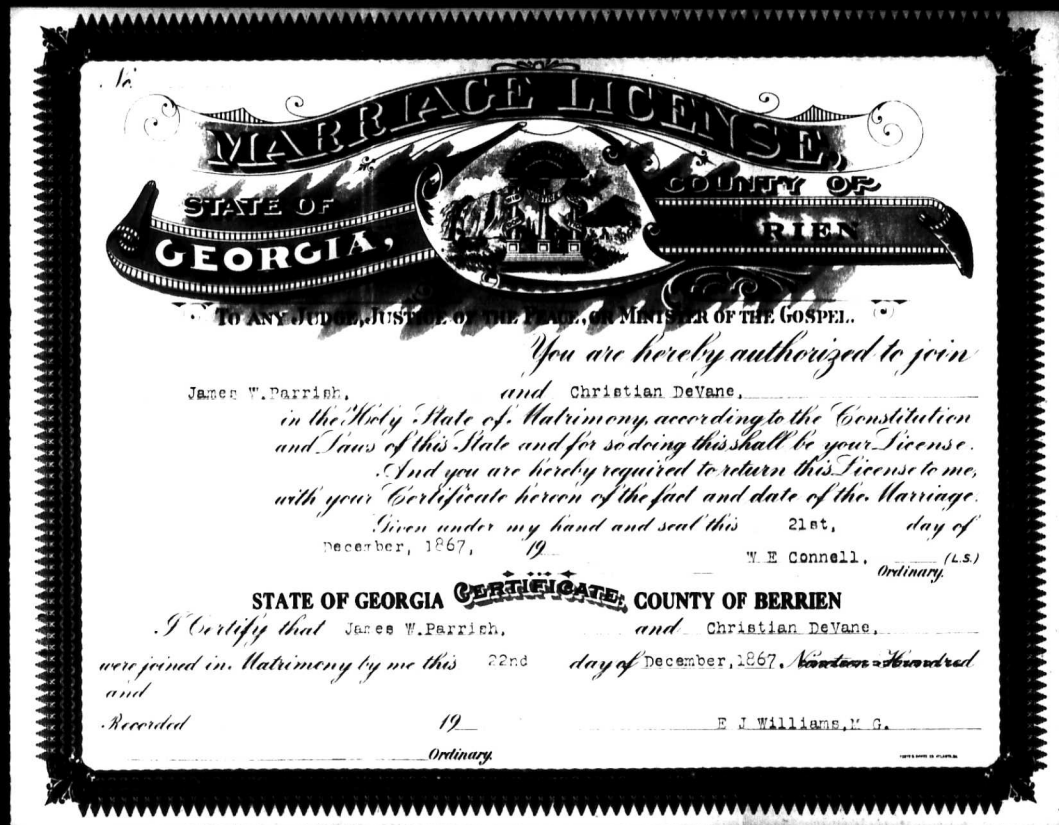 No.
MARRIAGE LICENSE,
STATE OF
COUNTY OF
GEORGIA,
RIEN
TO ANY JUDGE, JUSTICE OF THE PEACE, OR MINISTER OF THE GOSPEL.
You are hereby authorized to join
James W.Parrish, and Christian DeVane,
in the Holy State of Matrimony, according to the Constitution
and Laws of this State and for so doing this shall be your License.
And you are hereby required to return this License to me,
with your Certificate hereon of the fact and date of the Marriage.
Given under my hand and seal this 21st, day of
December, 1867, 19
W E Connell, (L.S.)
Ordinary.
STATE OF GEORGIA CERTIFICATE, COUNTY OF BERRIEN
I Certify that James W.Parrish, and Christian DeVane,
were joined in Matrimony by me this 22nd day of December, 1867. Nineteen Hundred
and
Recorded 19 E J Williams, M G.
Ordinary.